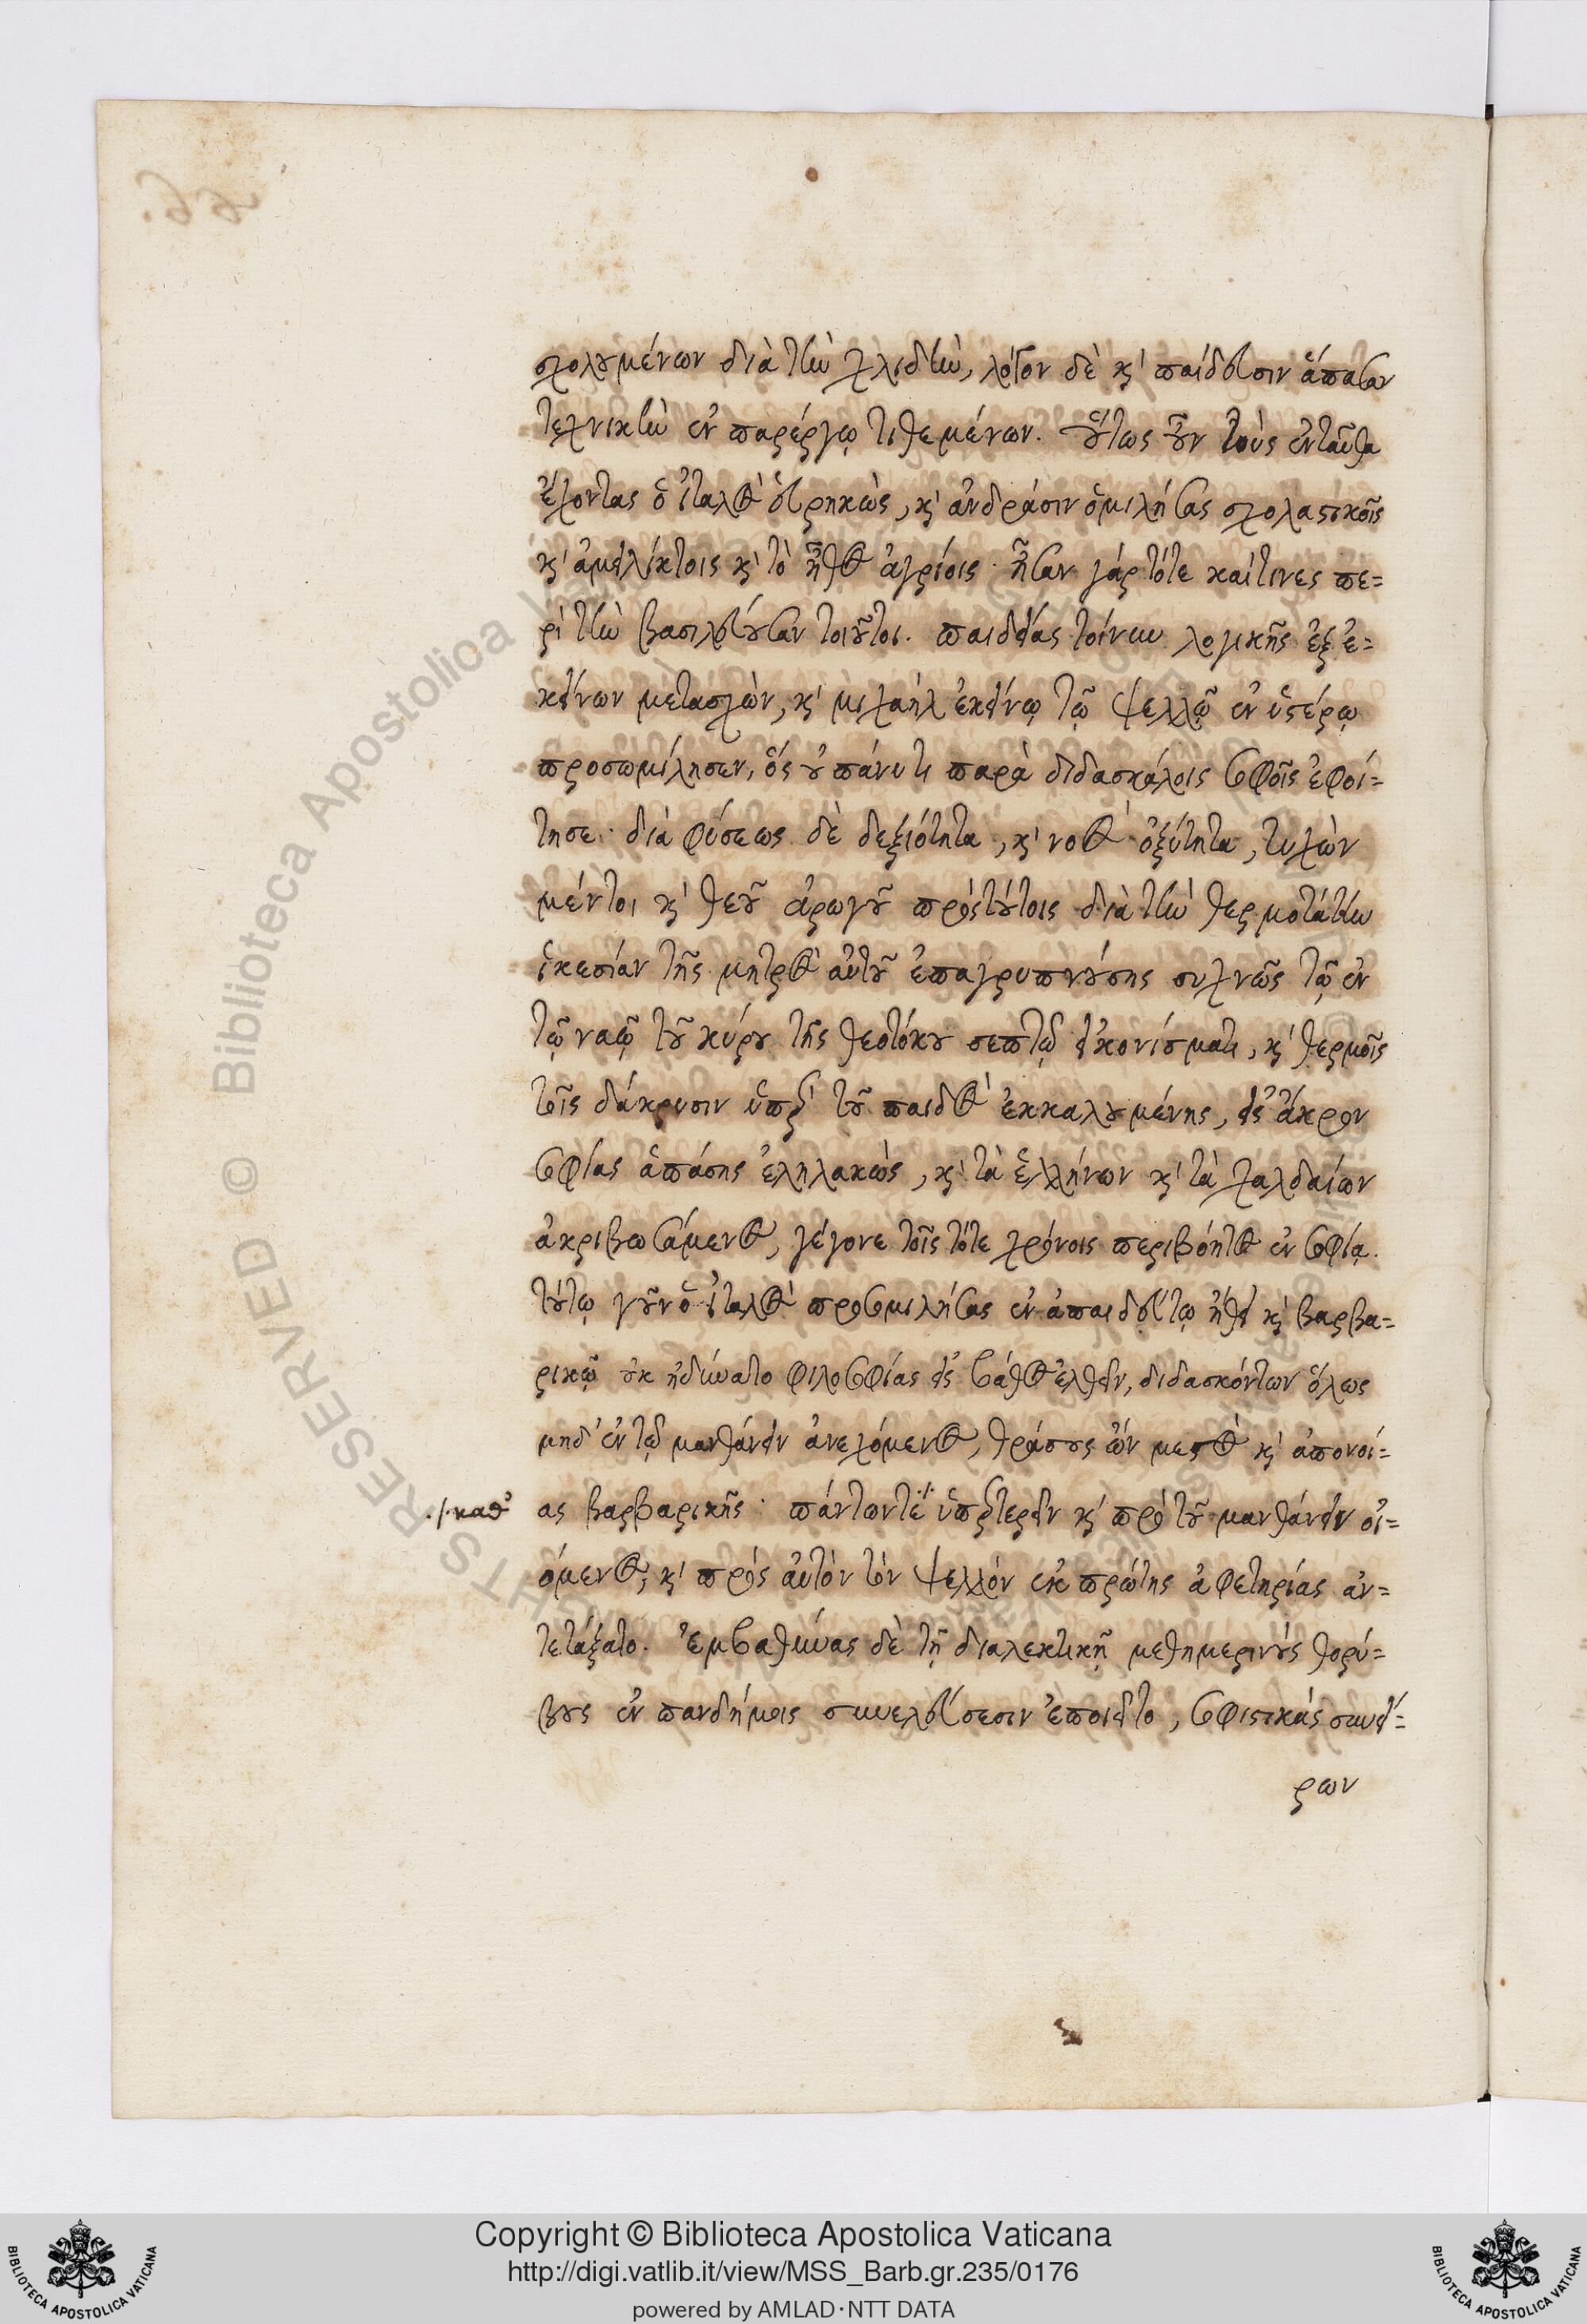 σχολουμένων διὰ τὴν χλιδὴν, λόγον δὲ καὶ παίδευσιν ἅπασαν
τεχνικὴν ἐν παρέργῳ τιθεμένων. οὕτως οὖν τοὺς ἐνταῦθα
ἔχοντας ὁ ἰταλὸς εὑρηκὼς, καὶ ἀνδράσιν ὁμιλήσας σχολαστικοῖς
καὶ ἀμειλίκτοις καὶ τὸ ἦθος ἀγρίοις· ἦσαν γάρ τότε καί τινες πε=
ρὶ τὴν βασιλεύουσαν τοιοῦτοι. παιδείας τοίνυν λογικῆς ἐξ ἐ=
κείνων μετασχὼν, καὶ μιχαὴλ ἐκείνῳ τῷ ψελλῷ ἐν ὑστέρῳ
προσωμίλησεν, ὅς οὐ πάνυ τι παρὰ διδασκάλοις σοφοῖς ἐφοί=
τησε· διὰ φύσεως δὲ δεξιότητα, καὶ νοὸς ὀξύτητα, τυχὼν
μέντοι καὶ θεοῦ ἀρωγοῦ πρός τούτοις διὰ τὴν θερμοτάτην
ἱκεσίαν τῆς μητρὸς αὐτοῦ ἐπαγρυπνούσης συχνῶς τῷ ἐν
τῷ ναῷ τοῦ κύρου τῆς θεοτόκου σεπτῷ εἰκονίσματι, καὶ θερμοῖς
τοῖς δάκρυσιν ὑπὲρ τοῦ παιδὸς ἐκκαλουμένης, εἰς ἄκρον
σοφίας ἁπάσης ἐληλακὼς, καὶ τὰ ἑλλήνων καὶ τὰ χαλδαίων
ἀκριβωσάμενος, γέγονε τοῖς τότε χρόνοις περιβόητος ἐν σοφίᾳ.
τούτῳ γοῦν ὁ ἰταλὸς προσομιλήσας ἐν ἀπαιδεύτῳ ἤθει καὶ βαρβα=
ρικῷ οὐκ ἠδύνατο φιλοσοφίας εἰς βάθος ἐλθεῖν, διδασκόντων ὅλως
μηδ' ἐν τῷ μανθάνειν ἀνεχόμενος, θράσους ὤν μεστὸς καὶ ἀπονοί=
./. καθ' ας βαρβαρικῆς· πάντων τέ ./. ὑπέρτερειν καὶ πρό τοῦ μανθάνειν οἰ=
όμενος, καὶ πρός αὐτὸν τόν ψελλόν ἐκ πρώτης ἀφετηρίας ἀν=
τετάξατο. ἐμβαθύνας δὲ τῇ διαλεκτικῇ μεθημερινούς θορύ=
βους ἐν πανδήμοις συνελεύσεσιν ἐποιεῖτο, σοφιστικάς συνεί=
ρων
Copyright © Biblioteca Apostolica Vaticana
http://digi.vatlib.it/view/MSS_Barb.gr.235/0176
powered by AMLAD · NTT DATA